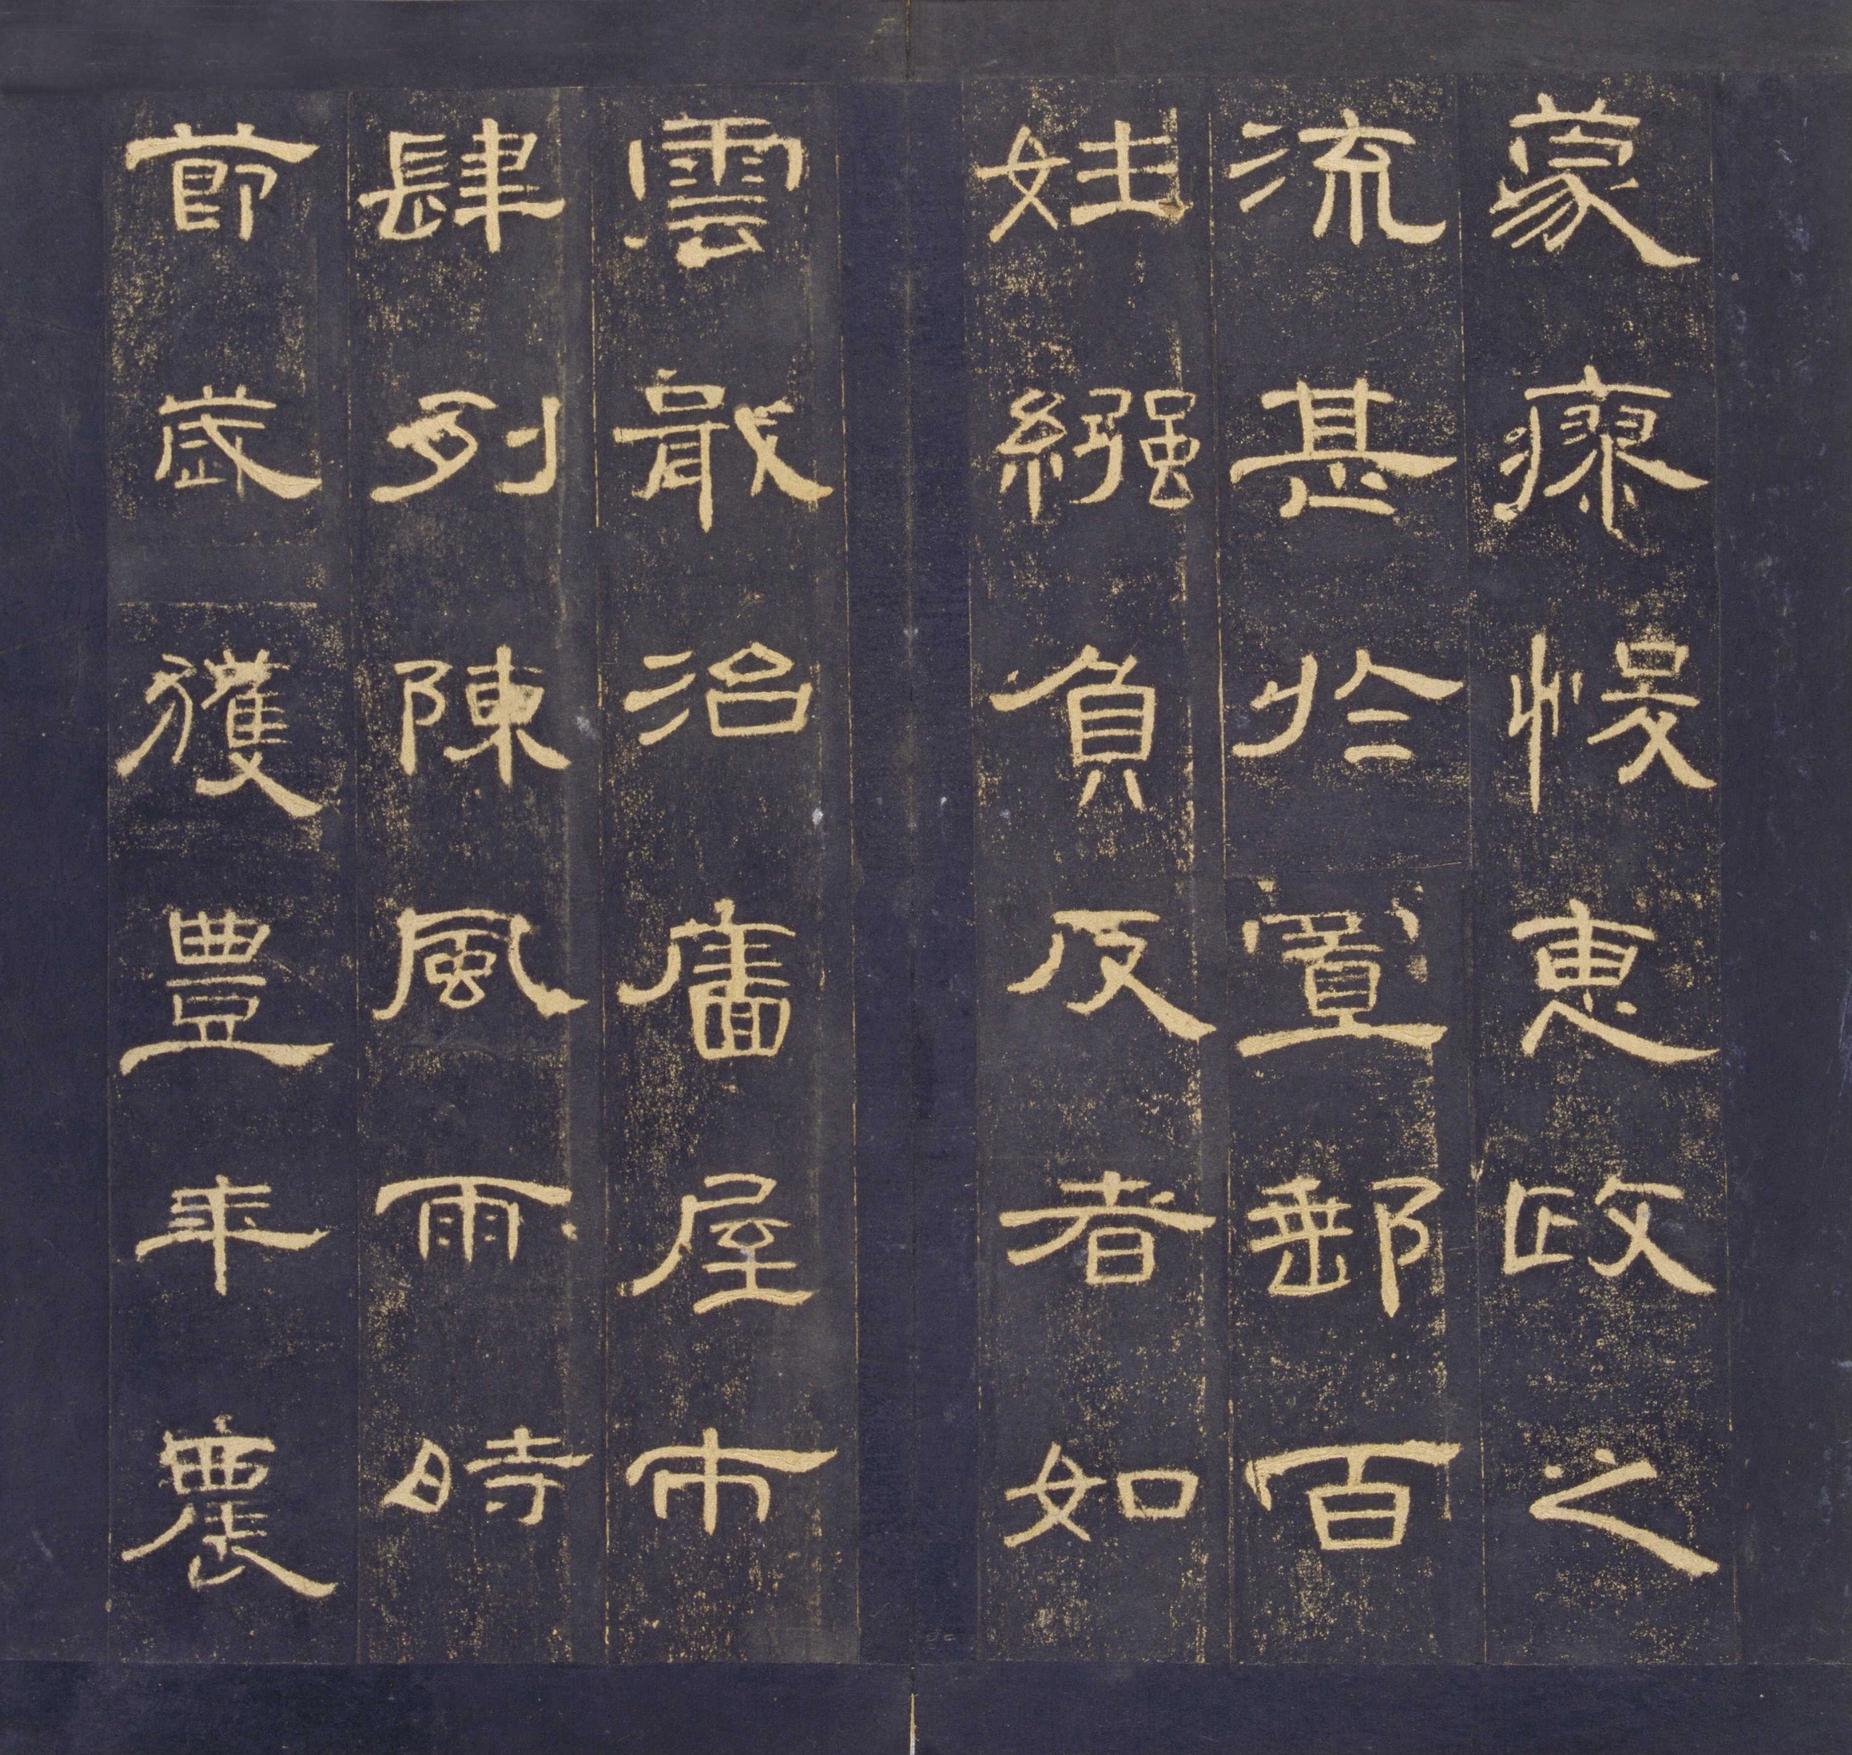 蒙瘳悛惠政之
流甚於置郵百
姓繦負反者如
雲戢治廧屋市
肆列陳風雨時
節歲獲豐年農